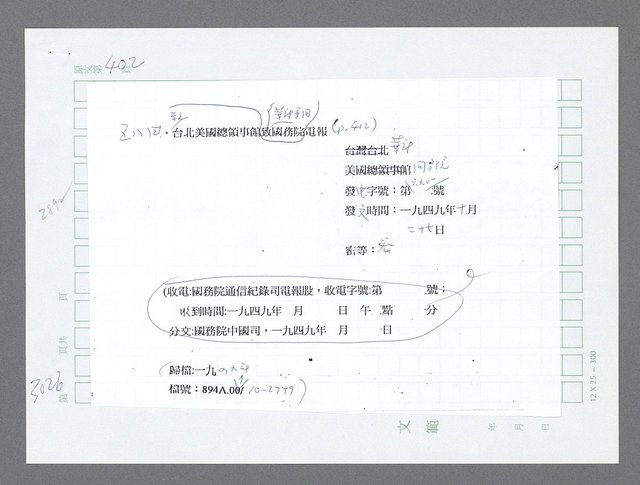 原文第402頁
華府
五八四．台北美國總領事館致國務院電報 (p.402)
台灣台北 華府
美國總領事館 國務院
發電字號：第 號
發文時間：一九四九年十月
二十七日
密等：密
(收電:國務院通信紀錄司電報股，收電字號:第 號；
收到時間:一九四九年 月 日 午 點 分
分文:國務院中國司，一九四九年 月 日
歸檔:一九四九年
檔號：894A.00/10-2749)
頁
頁共
3026
第
文範
年 月 日
12 X 25 = 300